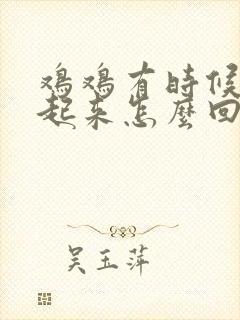 鸡鸡有時候
起来怎麼回
吴玉萍